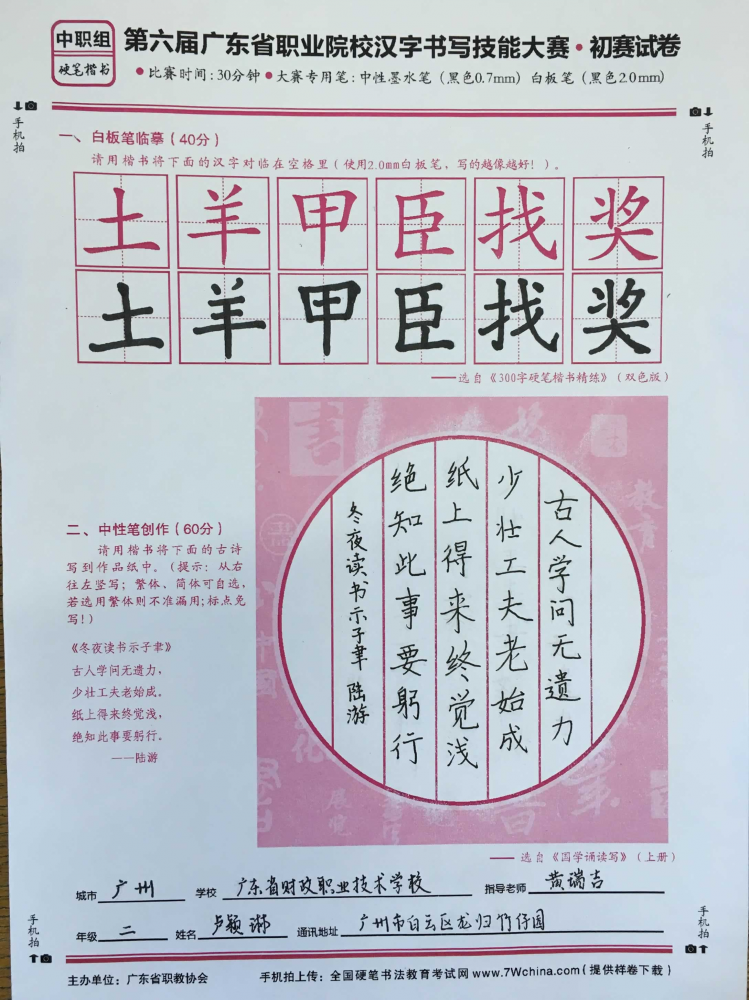 中职组
硬笔楷书
第六届广东省职业院校汉字书写技能大赛·初赛试卷
●比赛时间:30分钟●大赛专用笔:中性墨水笔（黑色0.7mm）白板笔（黑色2.0mm）
手机拍
手机拍
一、白板笔临摹（40分）
请用楷书将下面的汉字对临在空格里（使用2.0mm白板笔、写的越像越好！）。
土羊甲臣找奖
土羊甲臣找奖
——选自《300字硬笔楷书精练》（双色版）
二、中性笔创作（60分）
请用楷书将下面的古诗
写到作品纸中。（提示：从右
往左竖写；繁体、简体可自选，
若选用繁体则不准漏用;标点免
写！）
《冬夜读书示子聿》
古人学问无遗力，
少壮工夫老始成。
纸上得来终觉浅，
绝知此事要躬行。
——陆游
古人学问无遗力
少壮工夫老始成
纸上得来终觉浅
绝知此事要躬行
冬夜读书示子聿 陆游
教育
中国
展
——选自《国学诵读写》（上册）
城市 广州 学校 广东省财政职业技术学校 指导老师 黄瑞吉
年级 二 姓名 卢颖琳 通讯地址 广州市白云区龙归竹仔园
手机拍
手机拍
主办单位：广东省职教协会 手机拍上传：全国硬笔书法教育考试网 www.7Wchina.com（提供样卷下载）